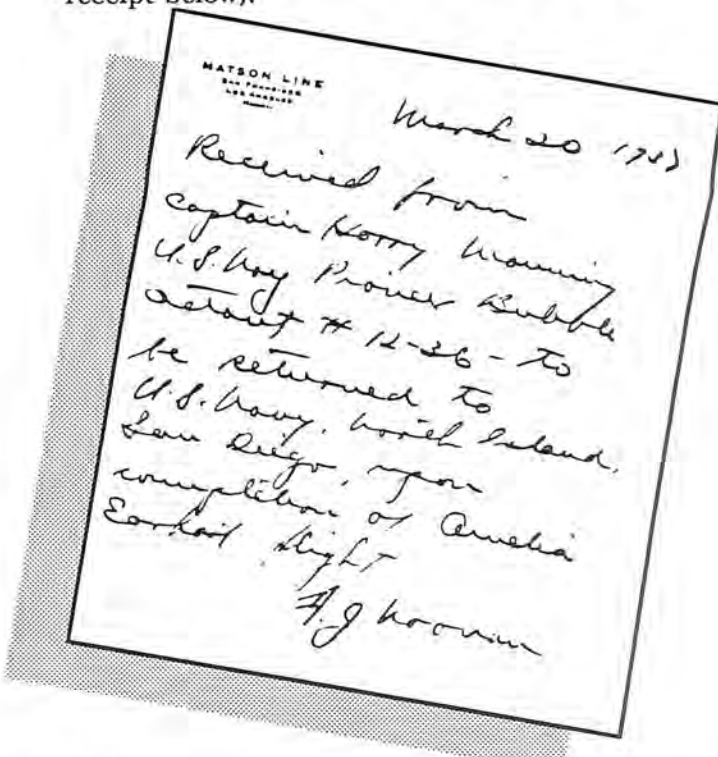 receipt below).
MATSON LINE
SAN FRANCISCO
LOS ANGELES
March 20 1937
Received from
Captain Harry Manning
U.S. Navy Pioneer Bubble
Octant # 12-36 - to
be returned to
U.S. Navy, North Island,
San Diego, upon
completion of Amelia
Earhart flight
F. J. Noonan